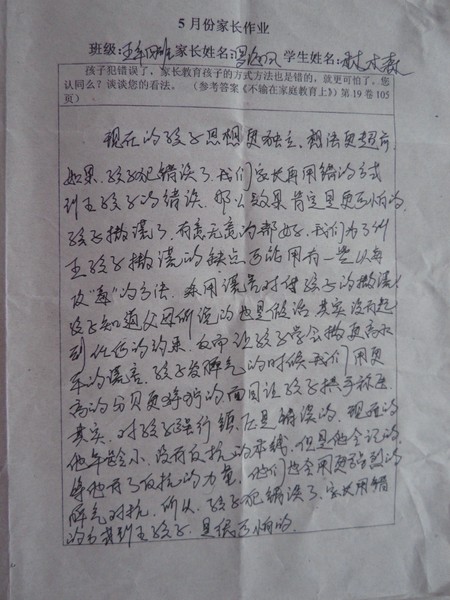 5月份家长作业
班级:五年四班家长姓名: 学生姓名: 林木森
孩子犯错误了,家长教育孩子的方式方法也是错的,就更可怕了。您
认同么?谈谈您的看法。(参考答案《不输在家庭教育上》)第19卷105
页)
现在的孩子思想更独立,想法更超前
如果孩子犯错误了,我们家长再用错的方式
纠正孩子的错误,那么效果肯定是更可怕的。
孩子撒谎了,有意无意的都好,我们为了纠
正孩子撒谎的缺点可能用有一些以毒
攻"毒"的方法,采用谎言对付孩子的撒谎
孩子知道父母所说的也是假话其实没有起
到任何的约束,反而让孩子学会撒更高水
平的谎言,孩子发脾气的时候我们用更
高的分贝更狰狞的面目让孩子
其实,对孩子强行镇压是错误的,现在的
他年龄小,没有反抗的 ,但是他会记的,
等他有了反抗的力量,他们也会用更强烈的
脾气对抗,所以,孩子犯错误了,家长用错
的方式纠正孩子,是很可怕的。